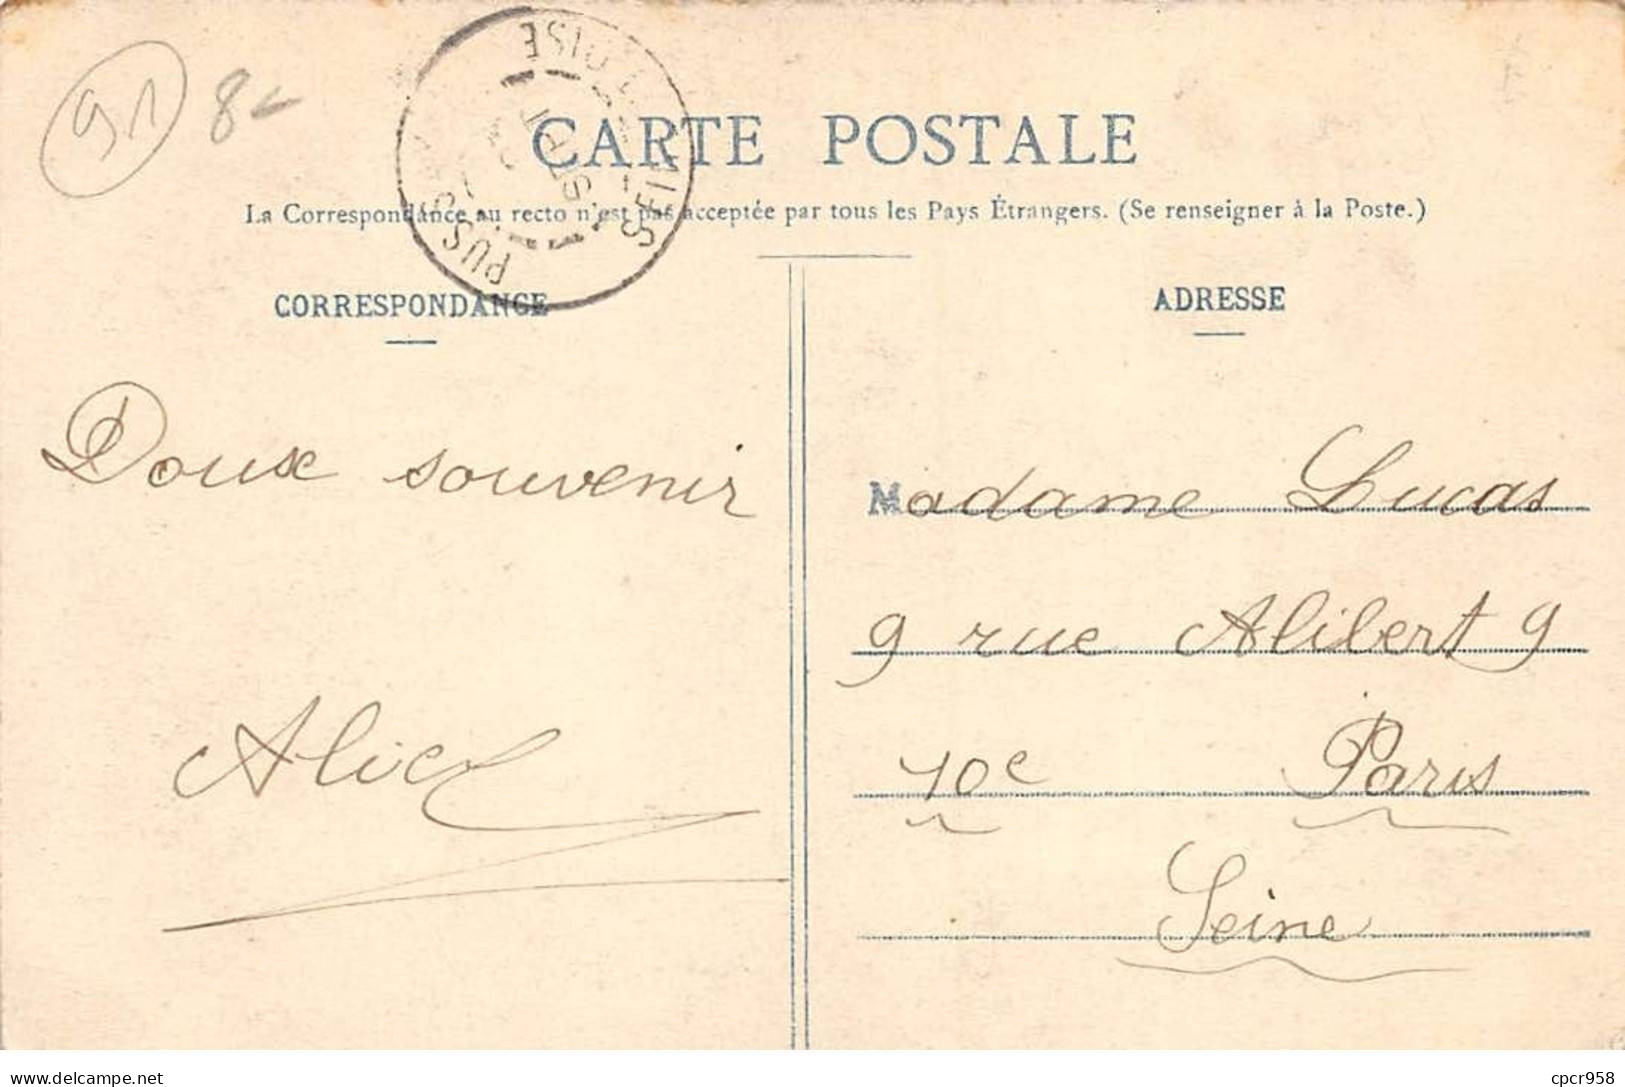 91 8
CARTE POSTALE
La Correspondance au recto n'est pas acceptée par tous les Pays Étrangers. (Se renseigner à la Poste.)
CORRESPONDANCE
Doux souvenir
Alice
ADRESSE
Madame Lucas
9 rue Alibert 9
10e Paris
Seine
delcampe.net
cpcr958